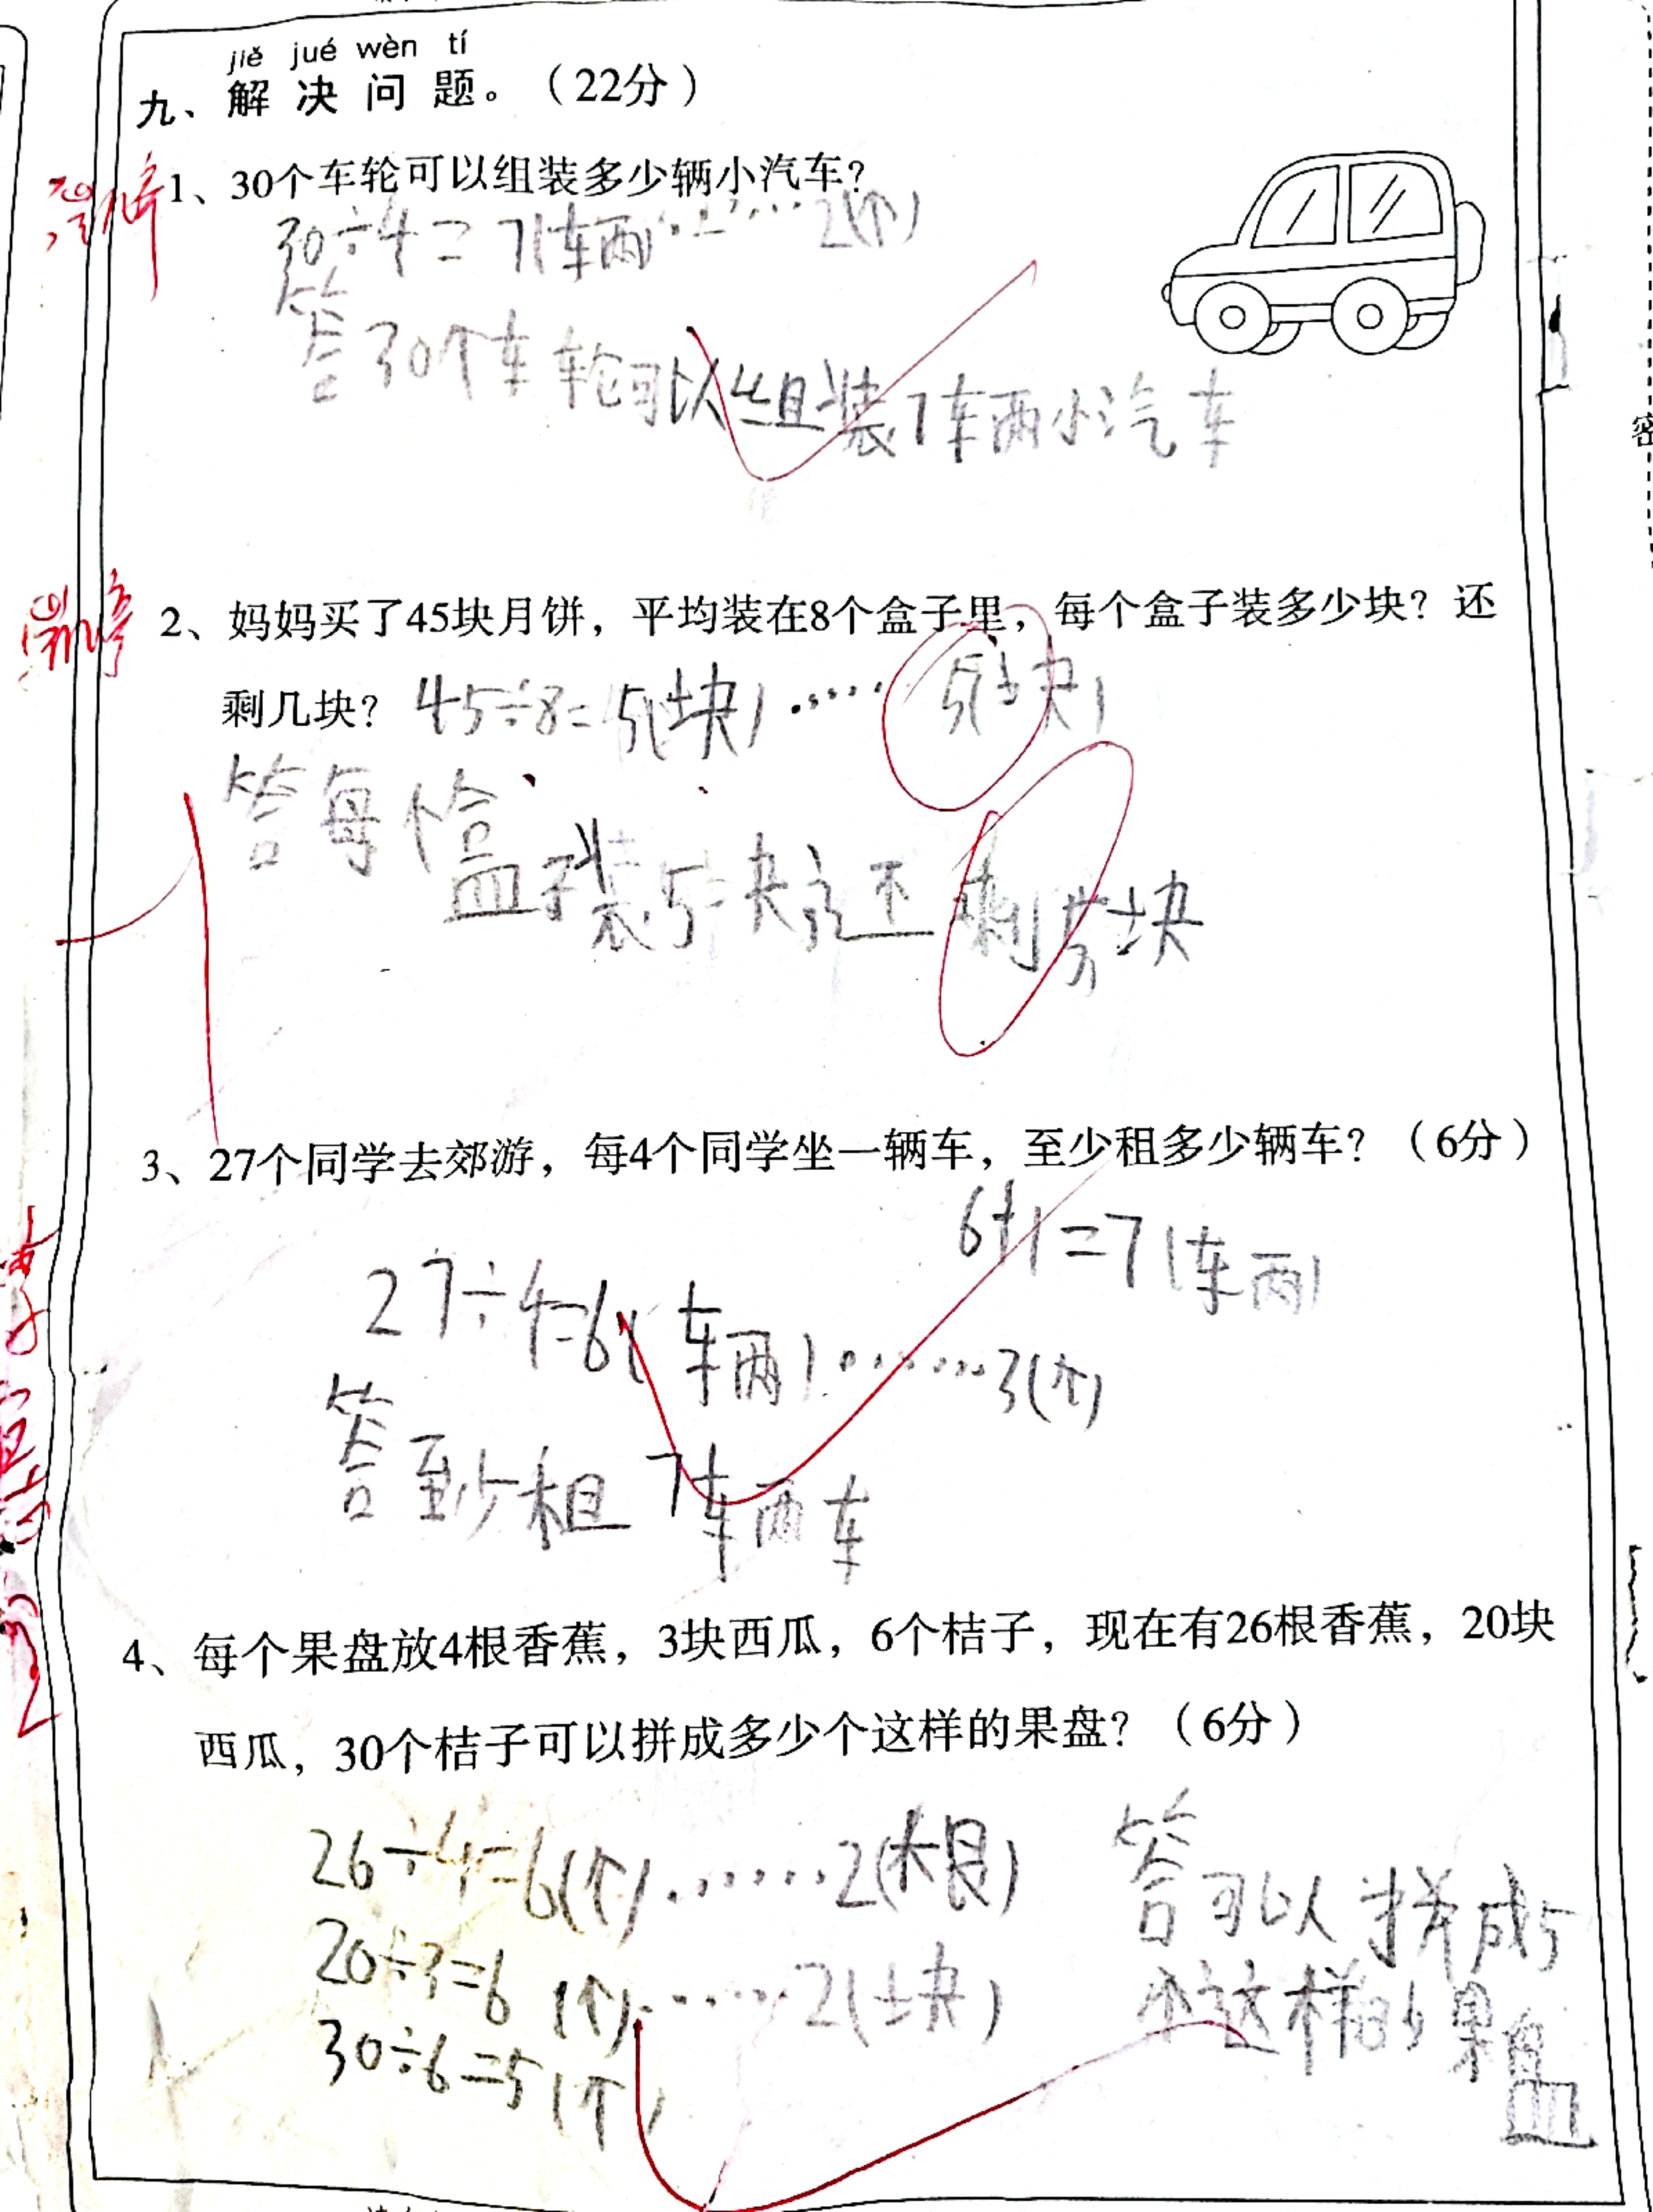 jiě jué wèn tí
九、解决问题。（22分）
1、30个车轮可以组装多少辆小汽车？
30÷4=7(辆)……2(个)
答30个车轮可以组装7辆小汽车
2、妈妈买了45块月饼，平均装在8个盒子里，每个盒子装多少块？还
剩几块？ 45÷8=5(块)……5(块)
答每个盒子装5块还剩 块
3、27个同学去郊游，每4个同学坐一辆车，至少租多少辆车？（6分）
6+1=7(辆)
27÷4=6(辆)……3(个)
答至少租7辆车
4、每个果盘放4根香蕉，3块西瓜，6个桔子，现在有26根香蕉，20块
西瓜，30个桔子可以拼成多少个这样的果盘？（6分）
26÷4=6(个)……2(根)
20÷3=6(个)……2(块)
30÷6=5(个)
答可以拼成5
个这样的果盘
密